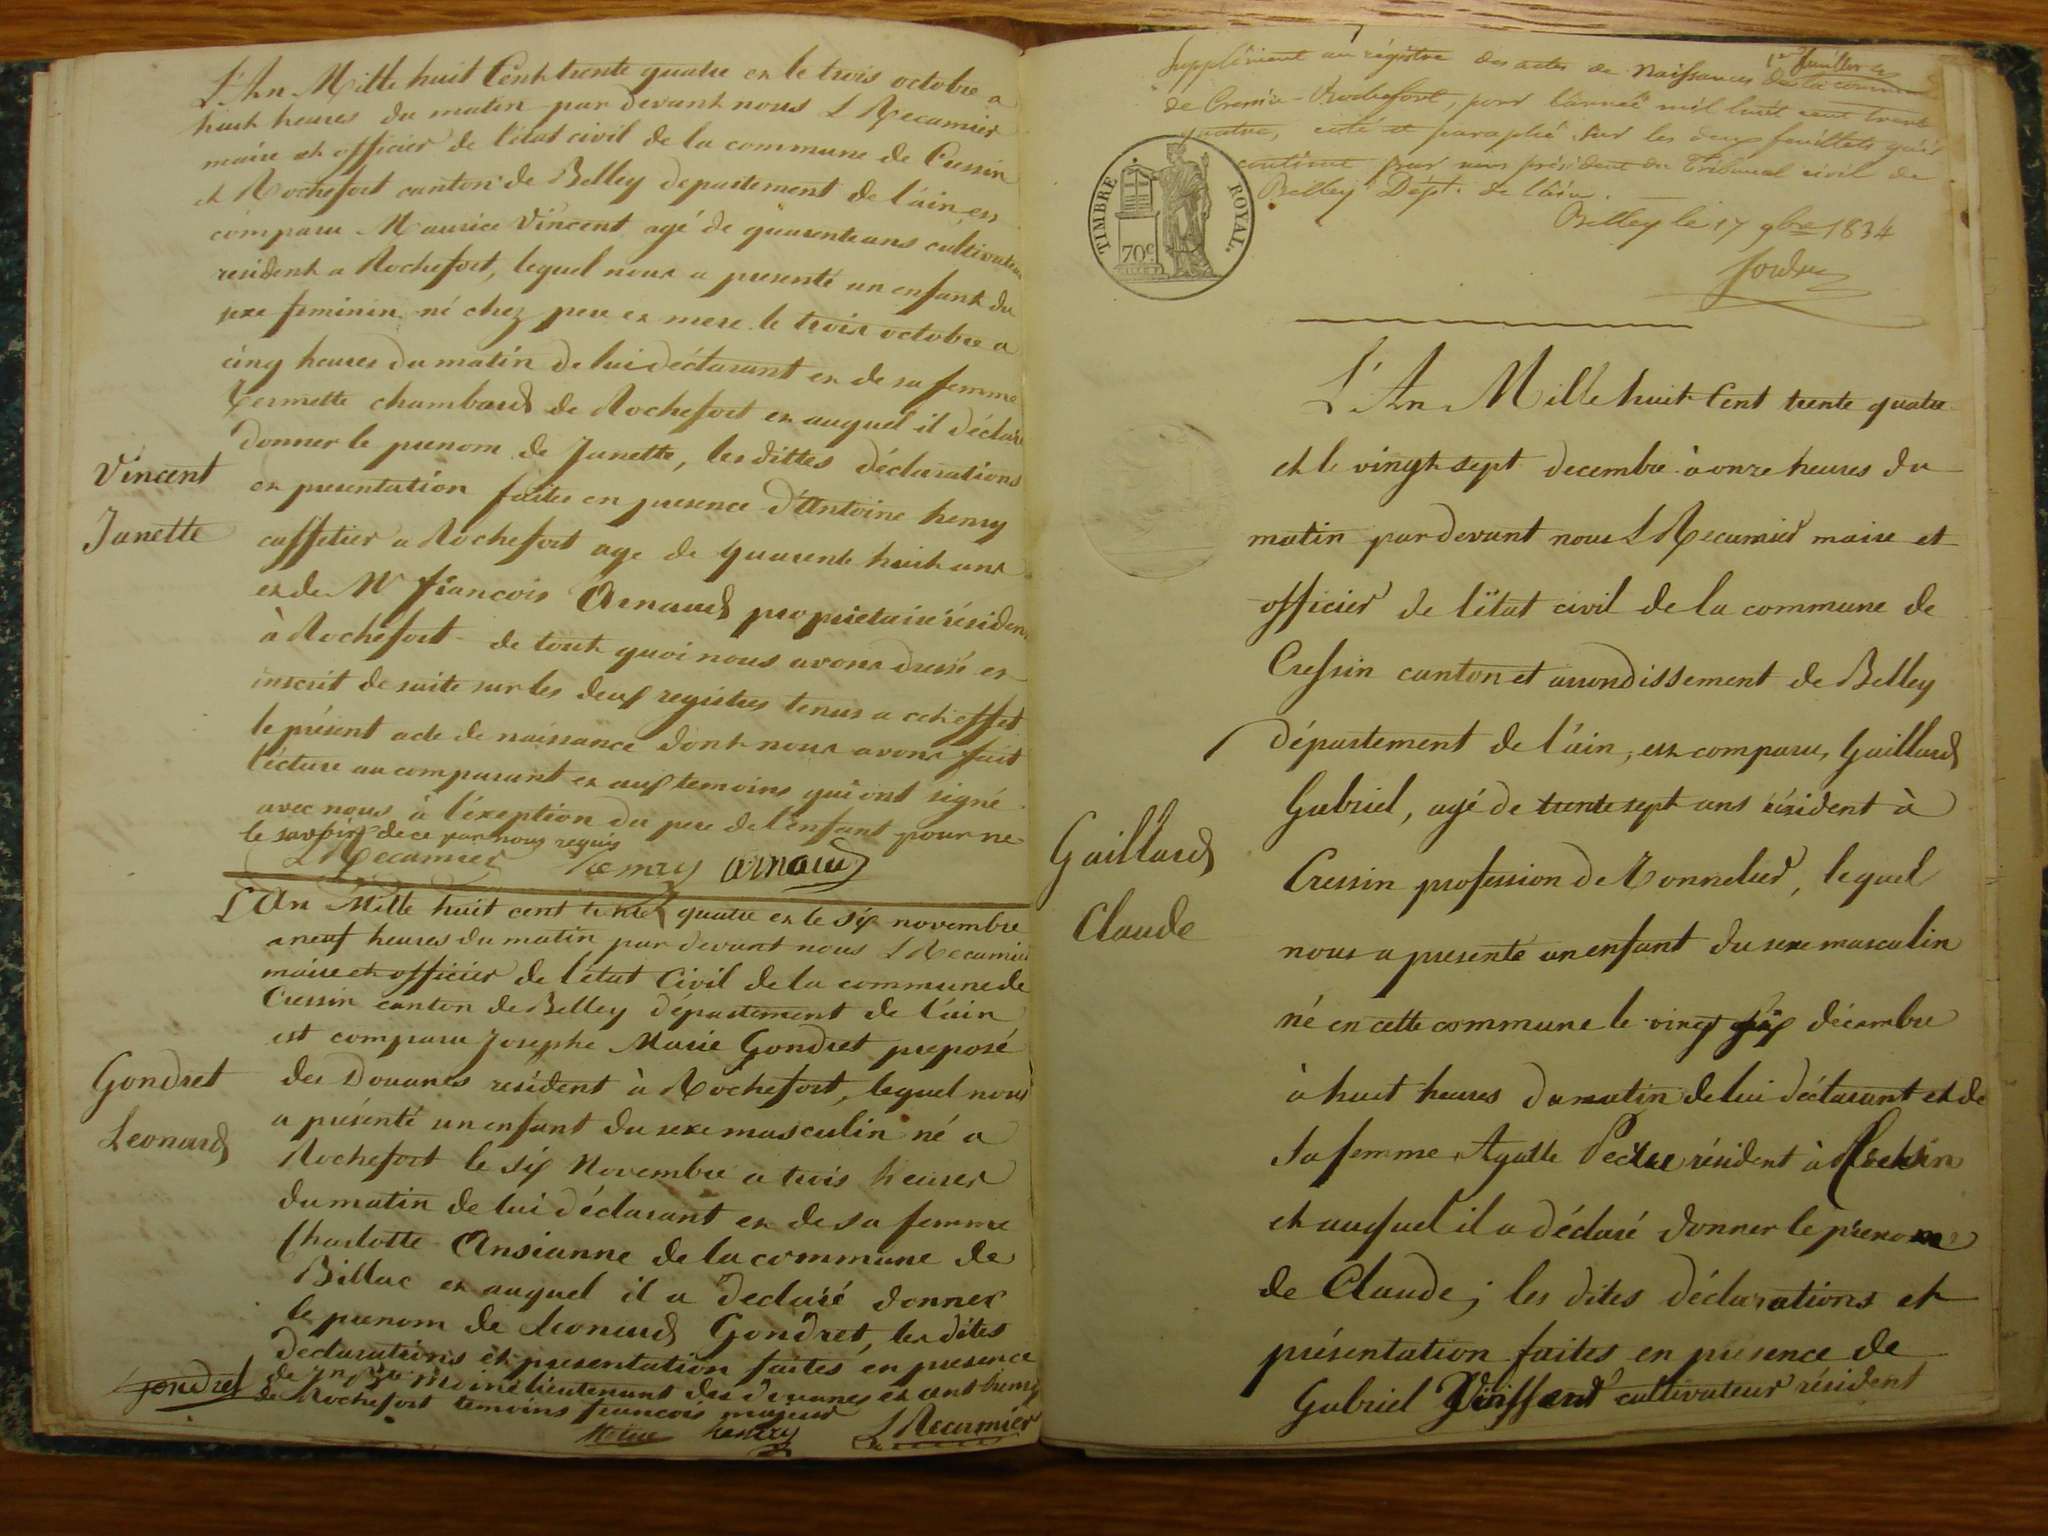 L'An Mille huit Cent trente quatre et le trois octobre a
huit heures du matin par devant nous L Recamier
maire et officier de l'état civil de la commune de Cressin
et Rochefort canton de Belley departement de l'ain est
comparu Maurice Vincent agé de quarente ans cultivateur
resident a Rochefort, lequel nous a presenté un enfant du
sexe feminin né chez pere et mere le trois octobre a
cinq heures du matin de lui déclarant et de sa femme
chambard de Rochefort et auquel il déclare
donner le prenom de Janette, les dittes déclarations
et presentation faites en presence d'Antoine henry
caffetier a Rochefort age de quarente huit ans
et de Mr françois Arnaud proprietaire résident
à Rochefort de tout quoi nous avons dressé et
inscrit de suite sur les deux registres tenus a cet effet
le présent acte de naissance dont nous avons fait
lécture au comparant et aux temoins qui ont signé
avec nous à l'éxeption du pere de l'enfant pour ne
le savoir de ce par nous requis
L Recamier henry arnaud
Vincent
Janette
L'An Mille huit cent trente quatre et le six novembre
a neuf heures du matin par devant nous L Recamier
maire et officier de l'état Civil de la commune de
Cressin canton de Belley département de l'ain
est comparu Josephe Marie Gondret preposé
des Douanes resident à Rochefort, lequel nous
a présenté un enfant du sexe masculin né a
Rochefort le six Novembre a trois heures
du matin de lui déclarant et de sa femme
Charlotte Ansianne de la commune de
Billac et auquel il a declaré donner
le prenom de Leonard Gondret, les dites
declarations et presentation faites en presence
de Moine lieutenant des douanes et ant henry
de Rochefort temoins francois majeur
gondret Moine henry L Recamier
Gondret
Leonard
1er feuillet
Supplément au régistre des actes de Naissances de la commune
de Cressin-Rochefort, pour l'année mil huit cent trente
quatre, coté et paraphé sur les deux feuillets qu'il
contient par nous président du Tribunal civil de
Belley Dépt. de l'ain.
Belley le 17 9bre 1834
TIMBRE ROYAL.
70c
L'An Mille huit Cent trente quatre
et le vingt sept decembre à onze heures du
matin par devant nous L Recamier maire et
officier de l'état civil de la commune de
Cressin canton et arrondissement de Belley
département de l'ain, est comparu, Gaillard
Gabriel, agé de trente sept ans résident à
Cressin profession de Tonnelier, lequel
nous a presenté un enfant du sexe masculin
né en cette commune le vingt six décembre
à huit heures du matin de lui déclarant et de
sa femme Agatte résident à Cressin
et auquel il a déclaré donner le prenom
de Claude; les dites déclarations et
présentation faites en presence de
Gabriel cultivateur résident
Gaillard
Claude